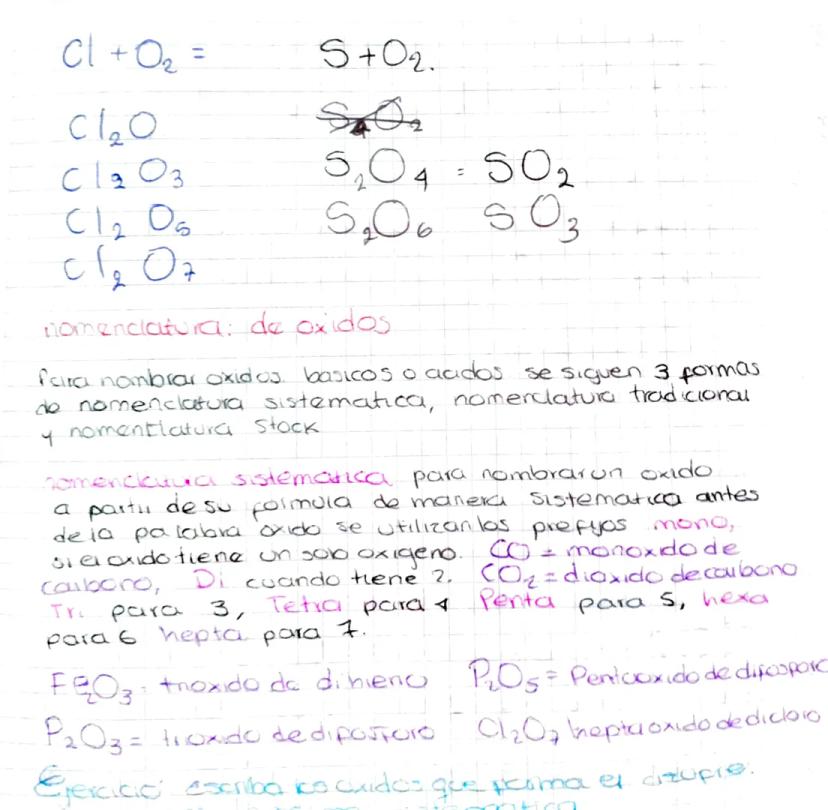 Cl + O2 = S + O2.
Cl2O S4O2
Cl2O3 S2O4 = SO2
Cl2O5 S2O6 SO3
Cl2O7
nomenclatura: de oxidos
Para nombrar oxidos basicos o acidos se siguen 3 formas
de nomenclatura sistematica, nomenclatura tradicional
y nomentlatura Stock
nomenclatura sistematica para nombrar un oxido
a partir de su formula de manera sistematica antes
de la palabra oxido se utilizan los prefijos mono,
si el oxido tiene un solo oxigeno. CO = monoxido de
carbono, Di cuando tiene 2. CO2 = dioxido de carbono
Tri para 3, Tetra para 4 Penta para 5, hexa
para 6 hepta para 7.
Fe2O3 = trioxido de dihierro P2O5 = Pentaoxido de difosforo
P2O3 = trioxido de difosforo Cl2O7 heptaoxido de dicloro
Ejercicio escriba los oxidos que forma el